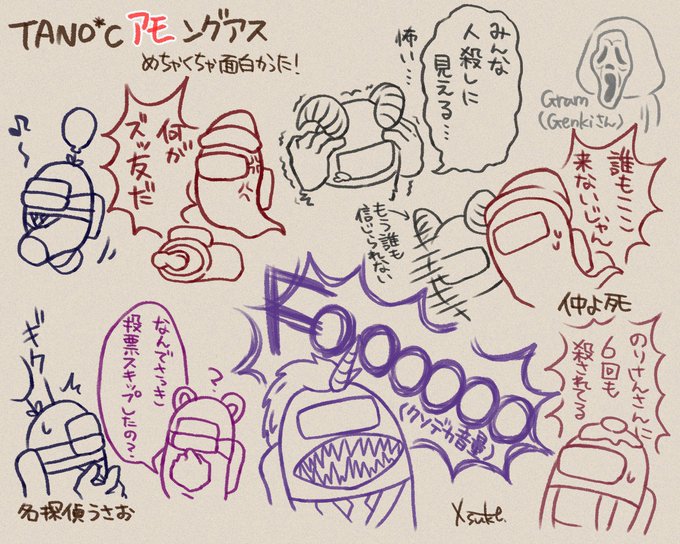 TANO*C アモングアス
めちゃくちゃ面白かった!
みんな
人殺しに
見える…
怖い…
Gram
(Genkiさん)
何が
ズッ友だ
誰もここ
来ないじゃん
もう誰も
信じられない
仲よ死
ギクッ
なんでさっき
投票スキップしたの?
?
Foooooo
(クソデカ音量)
のりけんさんに
6回も
殺されてる
名探偵うさお
Xsuke.